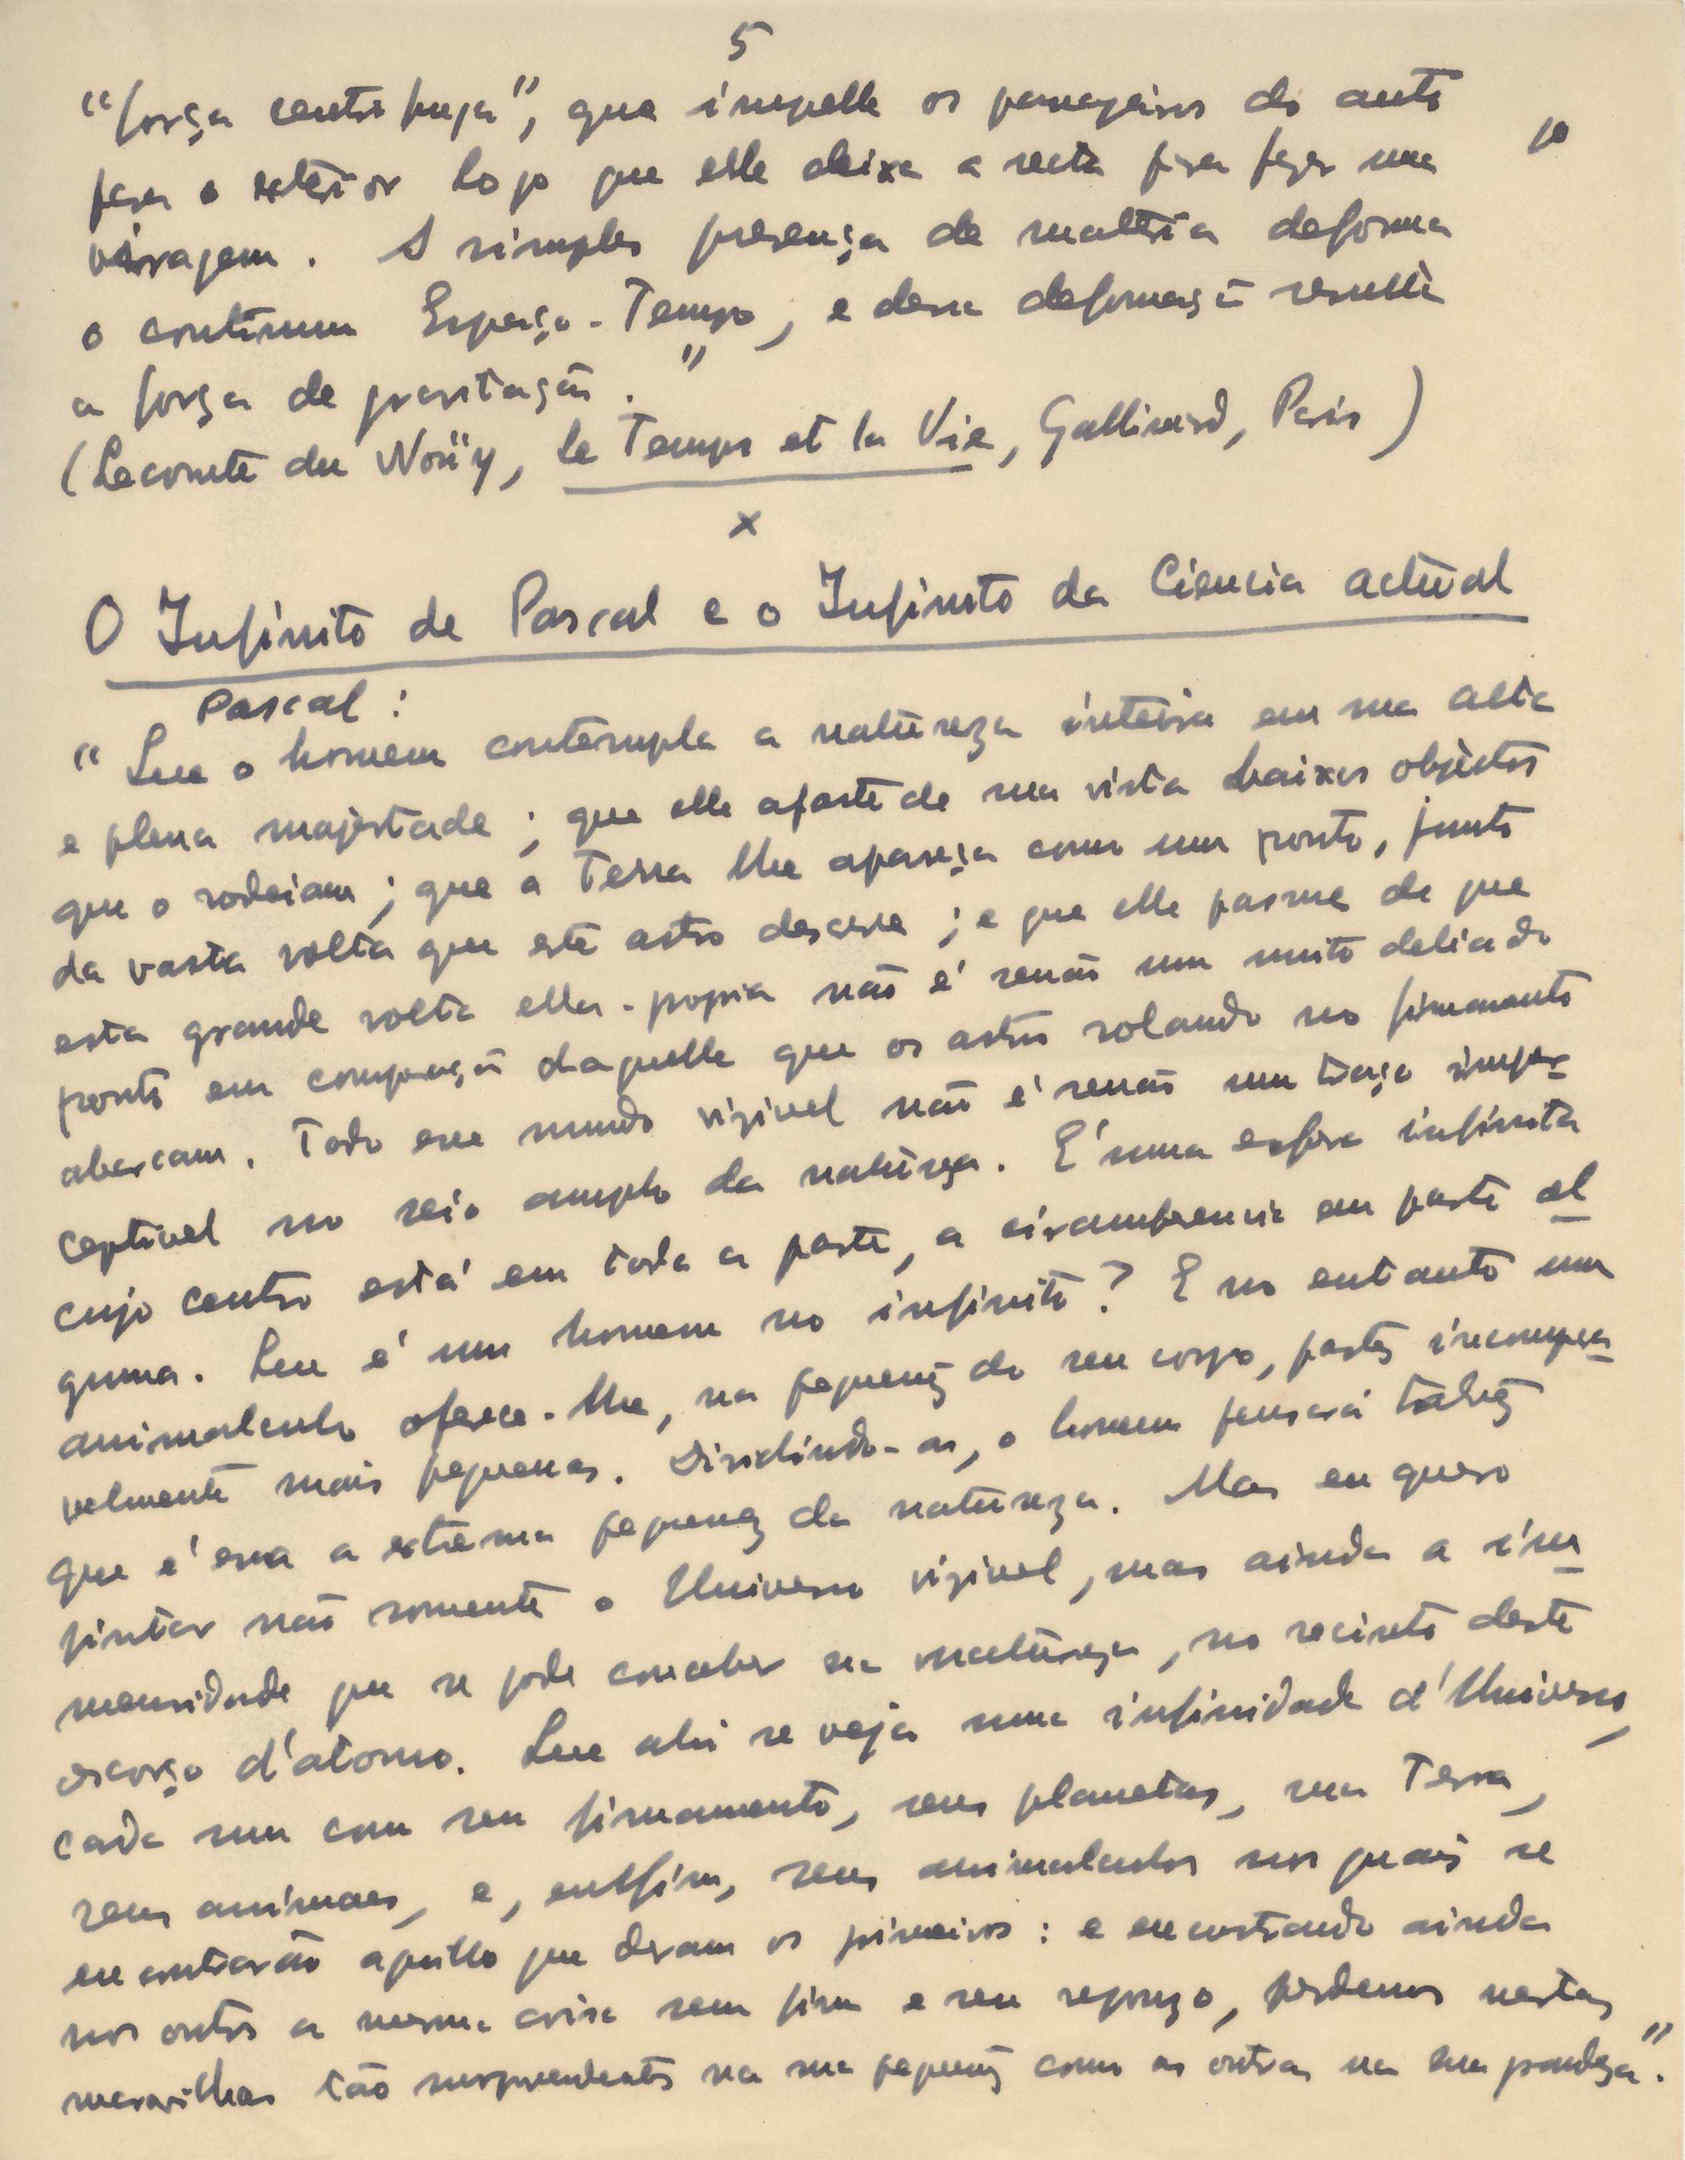 5
"força centrifuga", que impelle os passageiros do auto
10
para o exterior logo que elle deixa a recta para fazer uma
viragem. A simples presença de materia deforma
o continuum Espaço-Tempo, e dessa deformação resulta
a força de gravitação."
(Lecomte du Noüy, Le Temps et la Vie, Gallimard, Paris)
x
O Infinito de Pascal e o Infinito da Ciencia actual
Pascal:
"Que o homem contempla a natureza inteira em sua alta
e plena majestade; que elle afaste de sua vista baixos objectos
que o rodeiam; que a Terra lhe apareça como um ponto, junto
da vasta volta que este astro descreve; e que elle pasme de que
esta grande volta ella-propria não é senão um muito delicado
ponto em comparação daquelle que os astros rolando no firmamento
abarcam. Todo esse mundo vizivel não é senão um traço imper-
ceptivel no seio amplo da natureza. É uma esfera infinita
cujo centro está em toda a parte, a circumferencia em parte al-
guma. Que é um homem no infinito? E no entanto um
animalculo oferece-lhe, na pequenez do seu corpo, partes incompara-
velmente mais pequenas. Dividindo-as, o homem pensará talvez
que é essa a extrema pequenez da natureza. Mas eu quero
pintar não somente o Universo vizivel, mas ainda a im-
mensidade que se pode conceber na natureza, no recinto deste
escorço d'atomo. Que ahi se veja uma infinidade d'Universos,
cada um com seu firmamento, seus planetas, sua Terra,
seus animaes, e, emfim, seus animalculos nos quais se
encontrarão aquillo que deram os primeiros: e encontrando ainda
nos outros a mesma coisa sem fim e seu repouzo, perdemos nestas
maravilhas tão surprendentes na sua pequenez como as outras na sua grandeza".